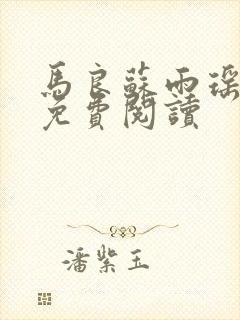 馬良蘇雨瑤
免費閱讀
潘紫玉